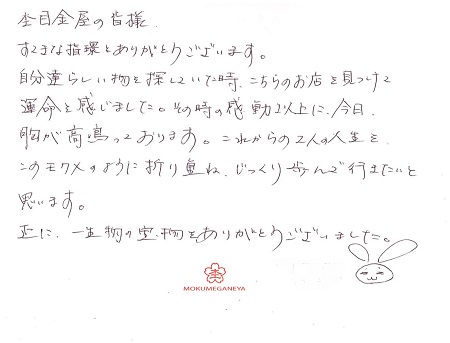 杢目金屋の皆様
すてきな指環をありがとうございます。
自分達らしい物を探していた時、こちらのお店を見つけて
運命を感じました。その時の感動以上に、今日、
胸が高鳴っております。これからの2人の人生を、
このモクメのように折り重ね、じっくり歩んで行きたいと
思います。
正に、一生物の宝物をありがとうございました。
MOKUMEGANEYA